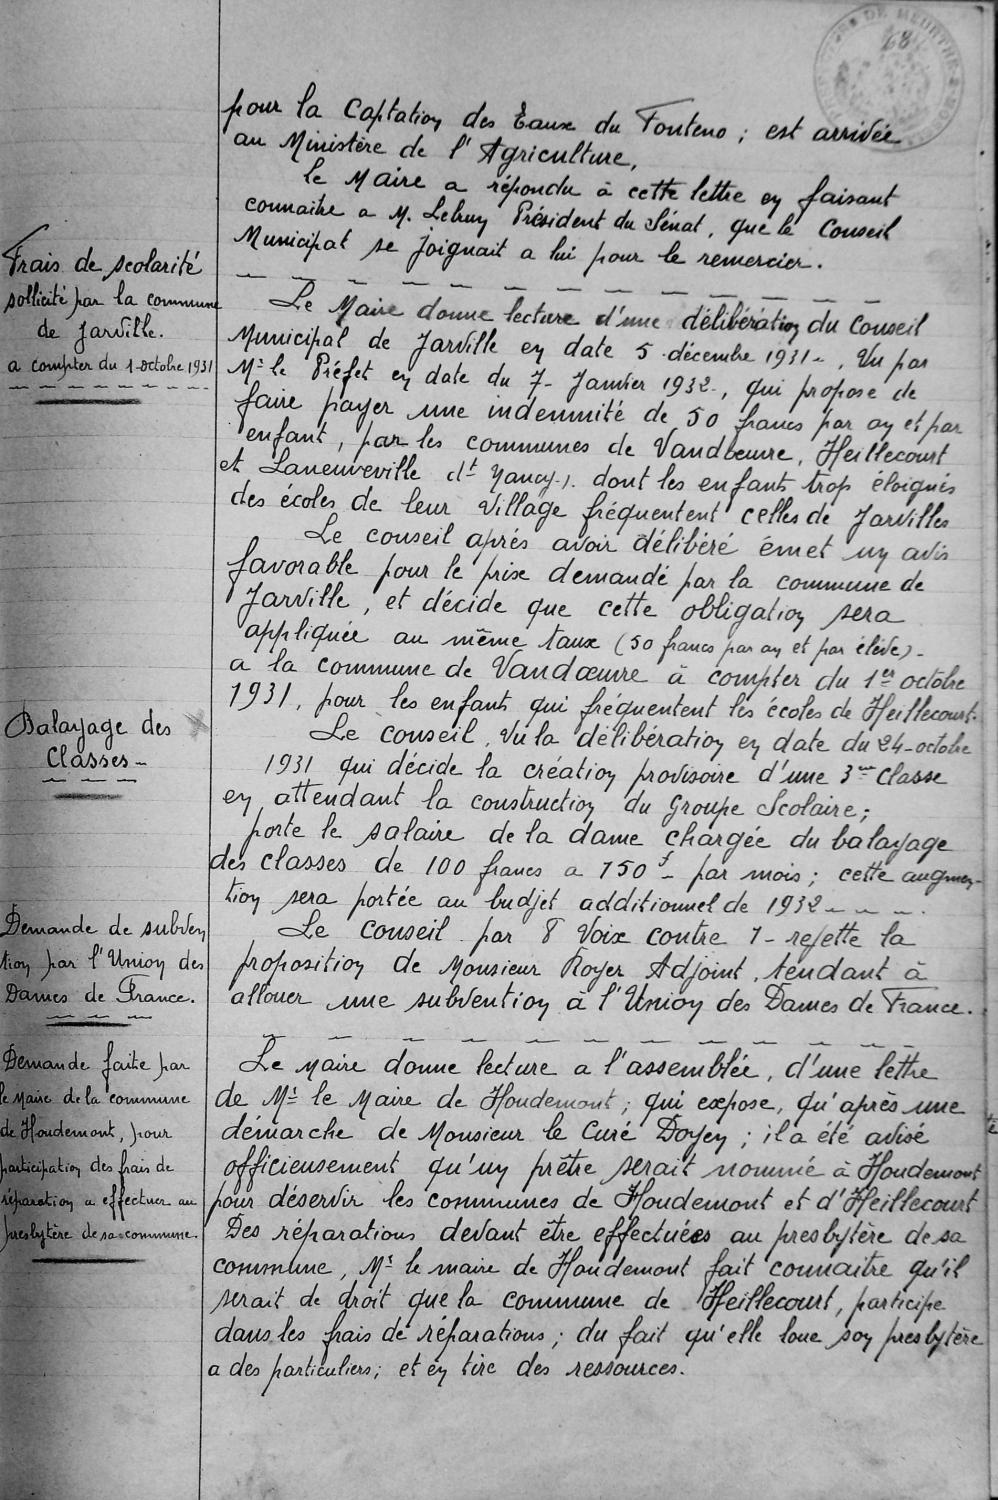 68
pour la Captation des Eaux du Fonteno ; est arrivée
au Ministère de l'Agriculture,
le Maire a répondu à cette lettre en faisant
connaitre a M. Lebrun Président du Sénat, que le Conseil
Municipal se joignait a lui pour le remercier.
Frais de scolarité
sollicité par la commune
de Jarville.
a compter du 1 octobre 1931
Le Maire donne lecture d'une délibération du Conseil
Municipal de Jarville en date 5 décembre 1931-, Vu par
Mr le Préfet en date du 7- Janvier 1932-, qui propose de
faire payer une indemnité de 50 francs par an et par
enfant, par les communes de Vandoeuvre, Heillecourt
et Laneuveville dt Nancy-). dont les enfants trop éloignés
des écoles de leur village fréquentent celles de Jarvilles
Le conseil aprés avoir délibéré émet un avis
favorable pour le prix demandé par la commune de
Jarville, et décide que cette obligation sera
appliquée au même taux (50 francs par an et par élève)-
a la commune de Vandœuvre à compter du 1er octobre
1931, pour les enfants qui fréquentent les écoles de Heillecourt.
Balayage des
Classes-
Le conseil, Vu la délibération en date du 24-octobre
1931 qui décide la création provisoire d'une 3me Classe
en attendant la construction du Groupe Scolaire ;
porte le salaire de la dame chargée du balayage
des classes de 100 francs a 150f- par mois ; cette augmen-
tion sera portée au budjet additionnel de 1932
Demande de subven
tion par l'Union des
Dames de France.
Le Conseil par 8 Voix contre 1- rejette la
proposition de Monsieur Royer Adjoint, tendant à
allouer une subvention à l'Union des Dames de France.
Demande faite par
le Maire de la commune
de Houdemont, pour
participation des frais de
réparation a effectuer au
presbytère de sa commune.
Le Maire donne lecture a l'assemblée, d'une lettre
de Mr le Maire de Houdemont ; qui expose, qu'après une
démarche de Monsieur le Curé Doyen ; il a été avisé
officieusement qu'un prêtre serait nommé à Houdemont
pour déservir les communes de Houdemont et d'Heillecourt
Des réparations devant être effectuées au presbytère de sa
commune, Mr le maire de Houdemont fait connaitre qu'il
serait de droit que la commune de Heillecourt, participe
dans les frais de réparations ; du fait qu'elle loue son presbytère
a des particuliers ; et en tire des ressources.